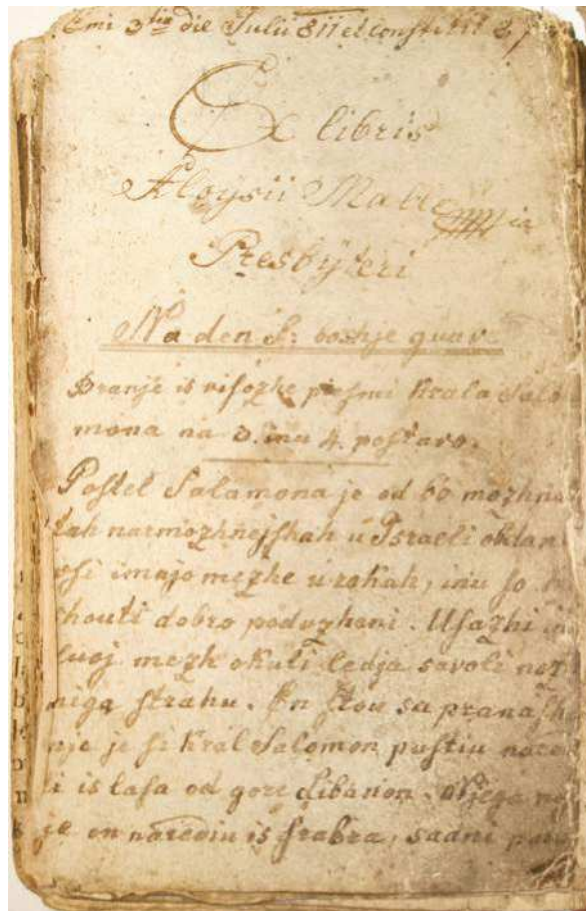 Emi 3tia die Julii 811 et constitit 2f
Ex libris
Aloysii
Presbÿteri
Na den S: boshje
Branje is visozke piesmi Krala Salo
mona na 3. inu 4. postavo.
Postel Salamona je od 60 mozhna
tah narmozhnejshah u Israeli obdan
vsi imajo mezhe u rokah, inu so
shouti dobro poduzheni. Usazhi
svoj mezh okuli ledja savoli noz
niga strahu. En stou sa prenash
nje je si Kral Salomon pustiu nare
ti is lasa od gore Libanon. Njega
je on narediu is srabra, sadni